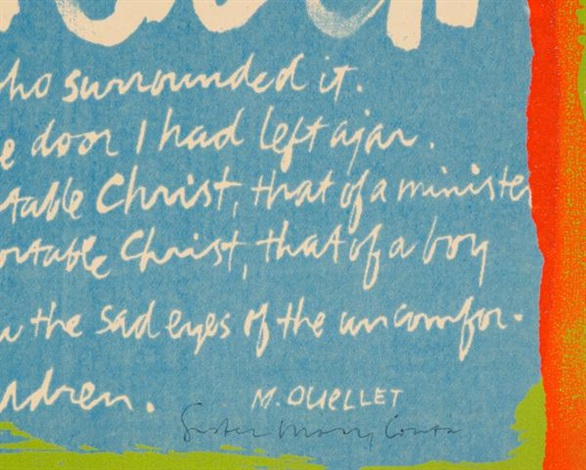 ho surrounded it.
e door I had left ajar.
table Christ, that of a minister
ortable Christ, that of a boy
the sad eyes of the uncomfor-
ldren.
M. OUELLET
Sister Mary Corita